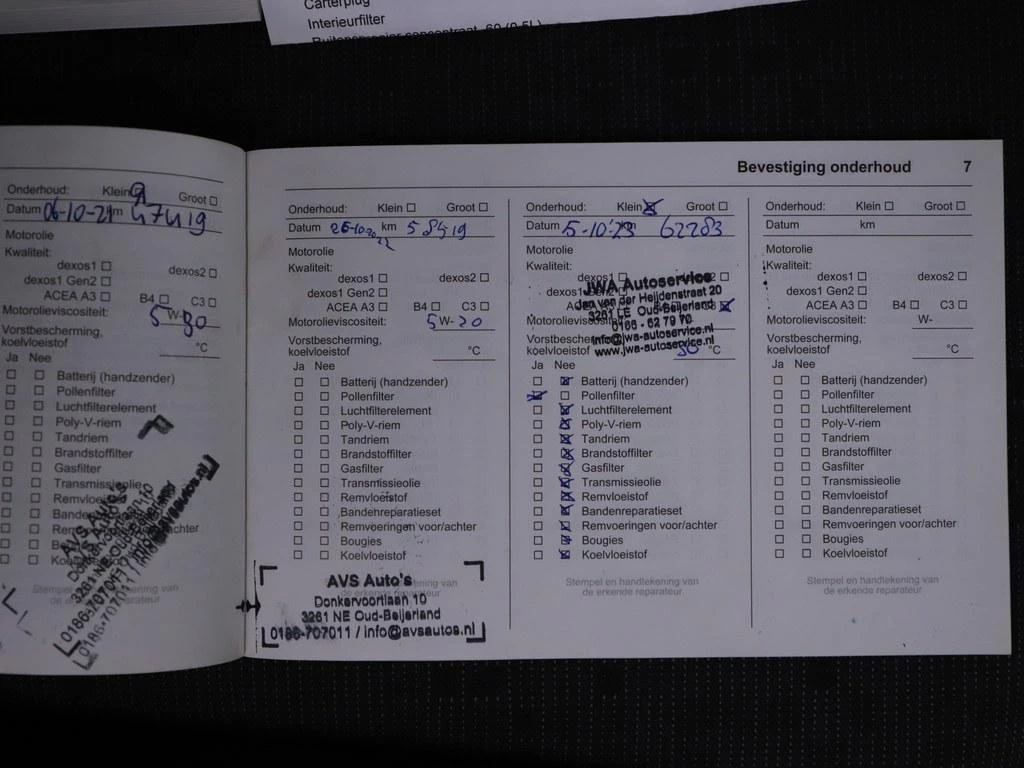 Carterplug
Interieurfilter
Bevestiging onderhoud 7
Onderhoud: Klein Groot
Datum 06-10-21 km 47419
Motorolie
Kwaliteit:
dexos1 dexos2
dexos1 Gen2
ACEA A3 B4 C3
Motorolieviscositeit: 5 W-30
Vorstbescherming,
koelvloeistof °C
Ja Nee
Batterij (handzender)
Pollenfilter
Luchtfilterelement
Poly-V-riem
Tandriem
Brandstoffilter
Gasfilter
Transmissieolie
Remvloeistof
Stempel en handtekening van
de erkende reparateur
AVS Auto's
Onderhoud: Klein Groot
Datum 26-10-2022 km 58419
Motorolie
Kwaliteit:
dexos1 dexos2
dexos1 Gen2
ACEA A3 B4 C3
Motorolieviscositeit: 5 W-30
Vorstbescherming,
koelvloeistof °C
Ja Nee
Batterij (handzender)
Pollenfilter
Luchtfilterelement
Poly-V-riem
Tandriem
Brandstoffilter
Gasfilter
Transmissieolie
Remvloeistof
Bandenreparatieset
Remvoeringen voor/achter
Bougies
Koelvloeistof
AVS Auto's
Donkervoortlaan 10
3261 NE Oud-Beijerland
0186-707011 / info@avsautos.nl
Onderhoud: Klein Groot
Datum 5-10-'23 62283
Motorolie
Kwaliteit:
dexos1
JWA Autoservice
Jan van der Heijdenstraat 20
3261 LE Oud-Beijerland
0186 - 62 79 70
info@jwa-autoservice.nl
www.jwa-autoservice.nl
koelvloeistof 30 °C
Ja Nee
Batterij (handzender)
Pollenfilter
Luchtfilterelement
Poly-V-riem
Tandriem
Brandstoffilter
Gasfilter
Transmissieolie
Remvloeistof
Bandenreparatieset
Remvoeringen voor/achter
Bougies
Koelvloeistof
Stempel en handtekening van
de erkende reparateur
Onderhoud: Klein Groot
Datum km
Motorolie
Kwaliteit:
dexos1 dexos2
dexos1 Gen2
ACEA A3 B4 C3
Motorolieviscositeit: W-
Vorstbescherming,
koelvloeistof °C
Ja Nee
Batterij (handzender)
Pollenfilter
Luchtfilterelement
Poly-V-riem
Tandriem
Brandstoffilter
Gasfilter
Transmissieolie
Remvloeistof
Bandenreparatieset
Remvoeringen voor/achter
Bougies
Koelvloeistof
Stempel en handtekening van
de erkende reparateur